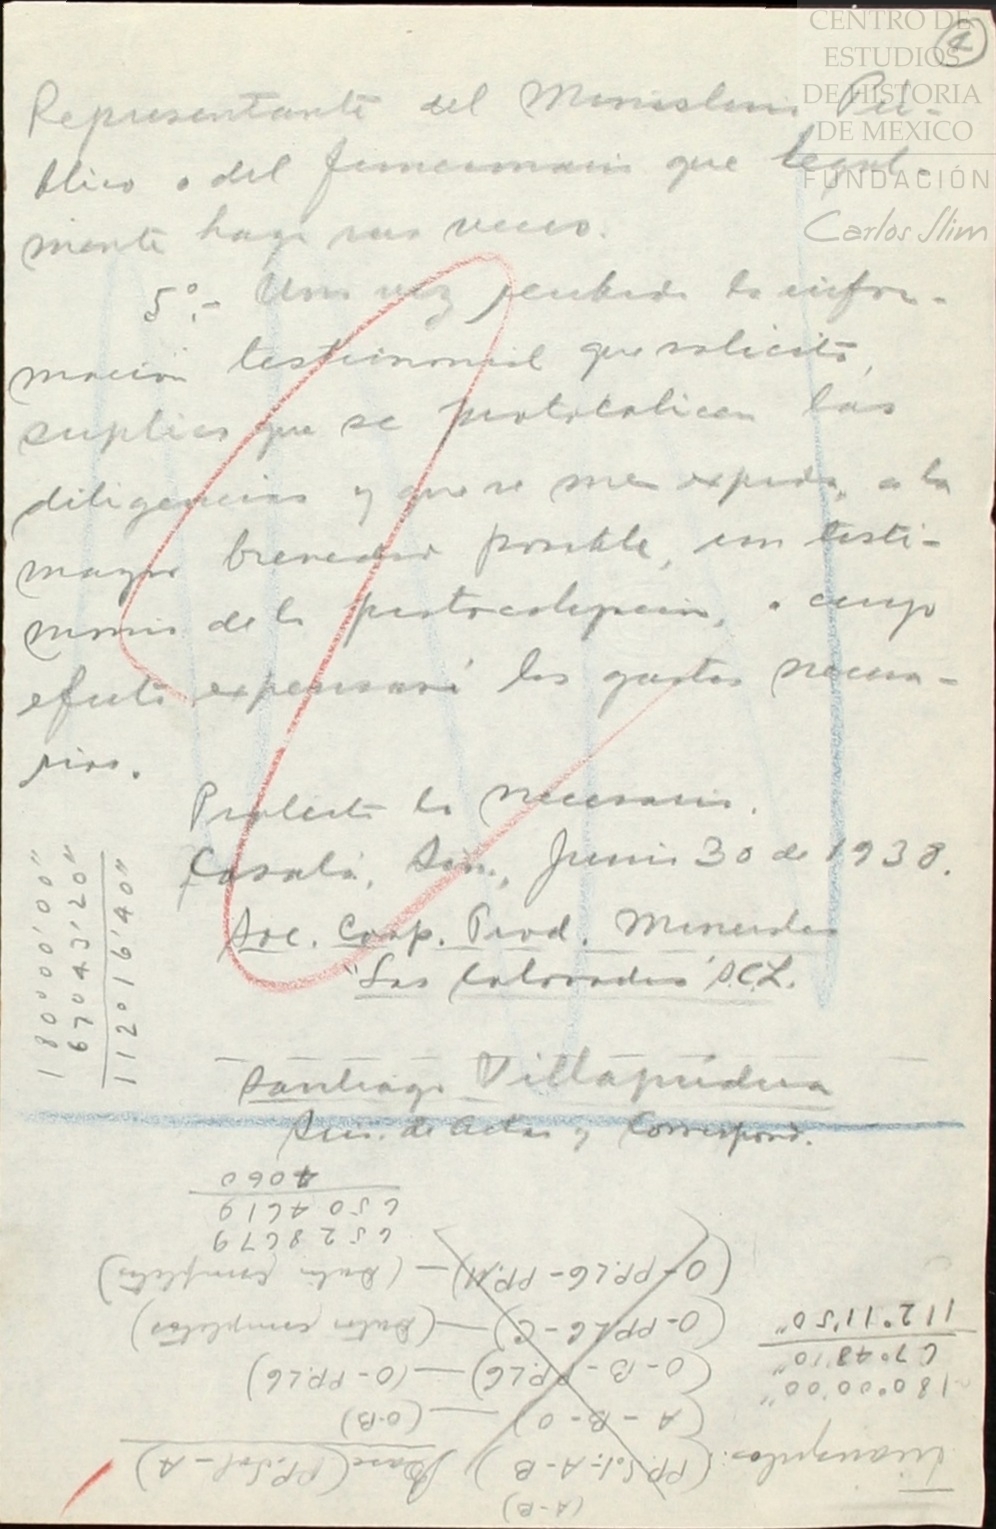 CENTRO DE
ESTUDIOS
DE HISTORIA
DE MEXICO
FUNDACIÓN
Carlos Slim
2
Representante del Ministerio Pú-
blico o del funcionario que legal-
mente haga sus veces.
5º.- Una vez recibida la infor-
mación testimonial que solicito,
suplico que se protocolicen las
diligencias y que se me expida, a la
mayor brevedad posible, un testi-
monio de la protocolización, a cuyo
efecto expensaré los gastos necesa-
rios.
Protesto lo necesario.
Cosalá, Sin., Junio 30 de 1938.
Soc. Coop. Prod. Mineros
"Las Coloradas" S.C.L.
Santiago Villapudua
Srio. de Actas y Correspond.
180°00'00"
67°43'20"
112°16'40"
Triángulos:
(A-B)
(PP.Sol-A-B) Base (PP.Sol-A)
(A-B-O) — (O-B)
(O-B-PP.LG) — (O-PP.LG)
(O-PP.LG-C) — (Datos completos)
(O-PP.LG-PP.M) — (Datos completos)
180°00'00"
67°48'10"
112°11'50"
6528679
6504619
4060